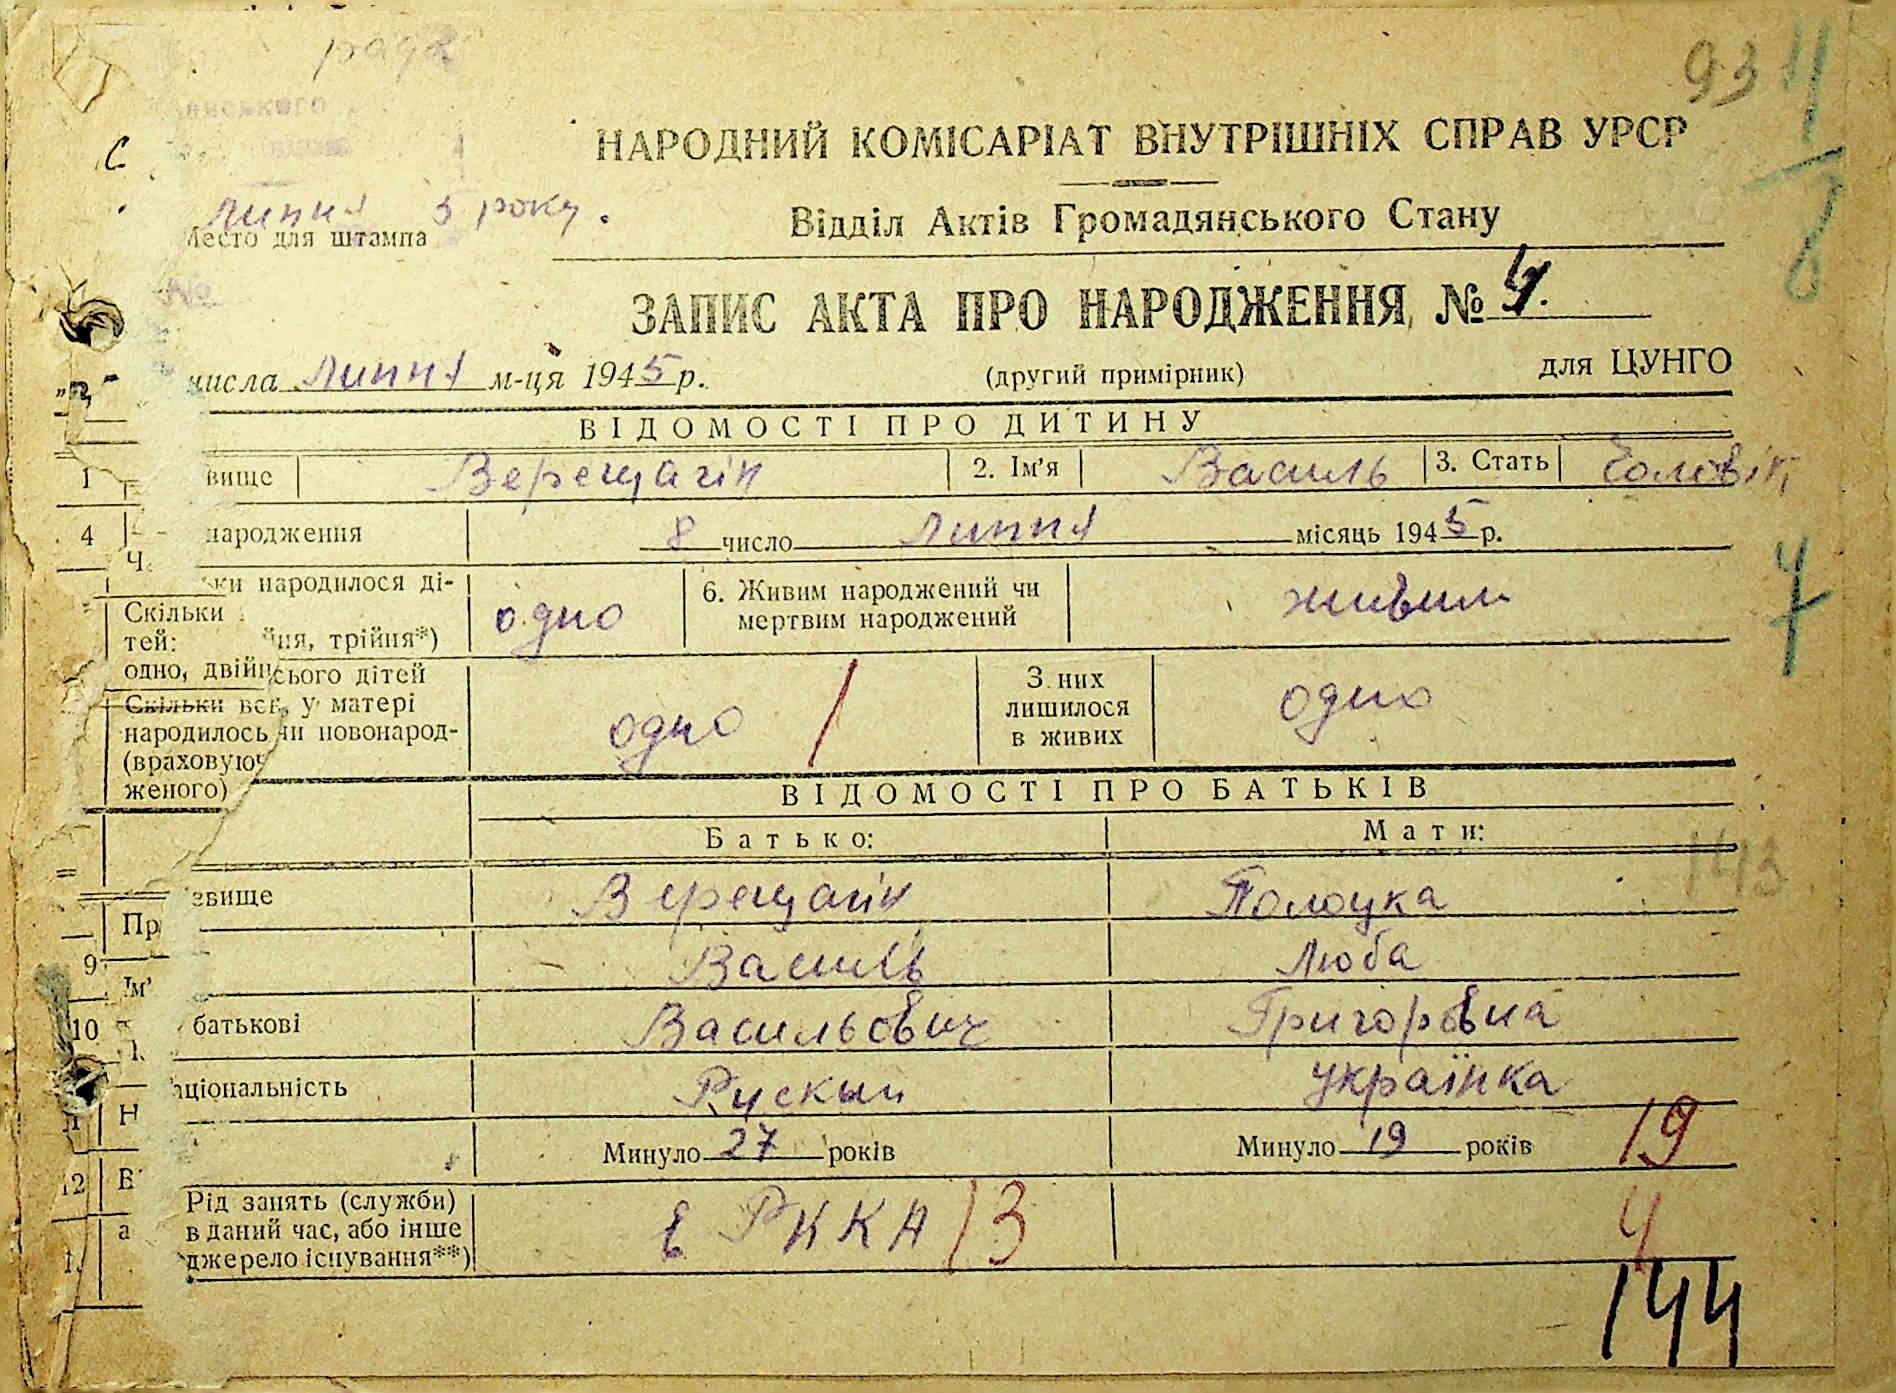 рада
93
НАРОДНИЙ КОМІСАРІАТ ВНУТРІШНІХ СПРАВ УРСР
Липня 5 року.
Место для штампа
Відділ Актів Громадянського Стану
№
ЗАПИС АКТА ПРО НАРОДЖЕННЯ, № 4.
числа Липня м-ця 1945 р. (другий примірник) для ЦУНГО
ВІДОМОСТІ ПРО ДИТИНУ
1 вище Верещагін 2. Ім'я Василь 3. Стать Чоловік
4 народження 8 число Липня місяць 1945 р.
ьки народилося ді-
Скільки
тей: йня, трійня*)
одно, двійн
одно 6. Живим народжений чи мертвим народжений живим
4
сього дітей
Скільки вс у матері
народилось чи новонарод-
(враховуюч
женого)
одно З них лишилося в живих одно
ВІДОМОСТІ ПРО БАТЬКІВ
Батько: Мати:
143
звище Верещагін Полоцка
Пр
9 Ім' Василь Люба
10 батькові Васильович Григоровна
аціональність Рускый українка
11 Н Минуло 27 років Минуло 19 років 19
12 В
Рід занять (служби)
в даний час, або інше
джерело існування**)
в РККА 13 4
144